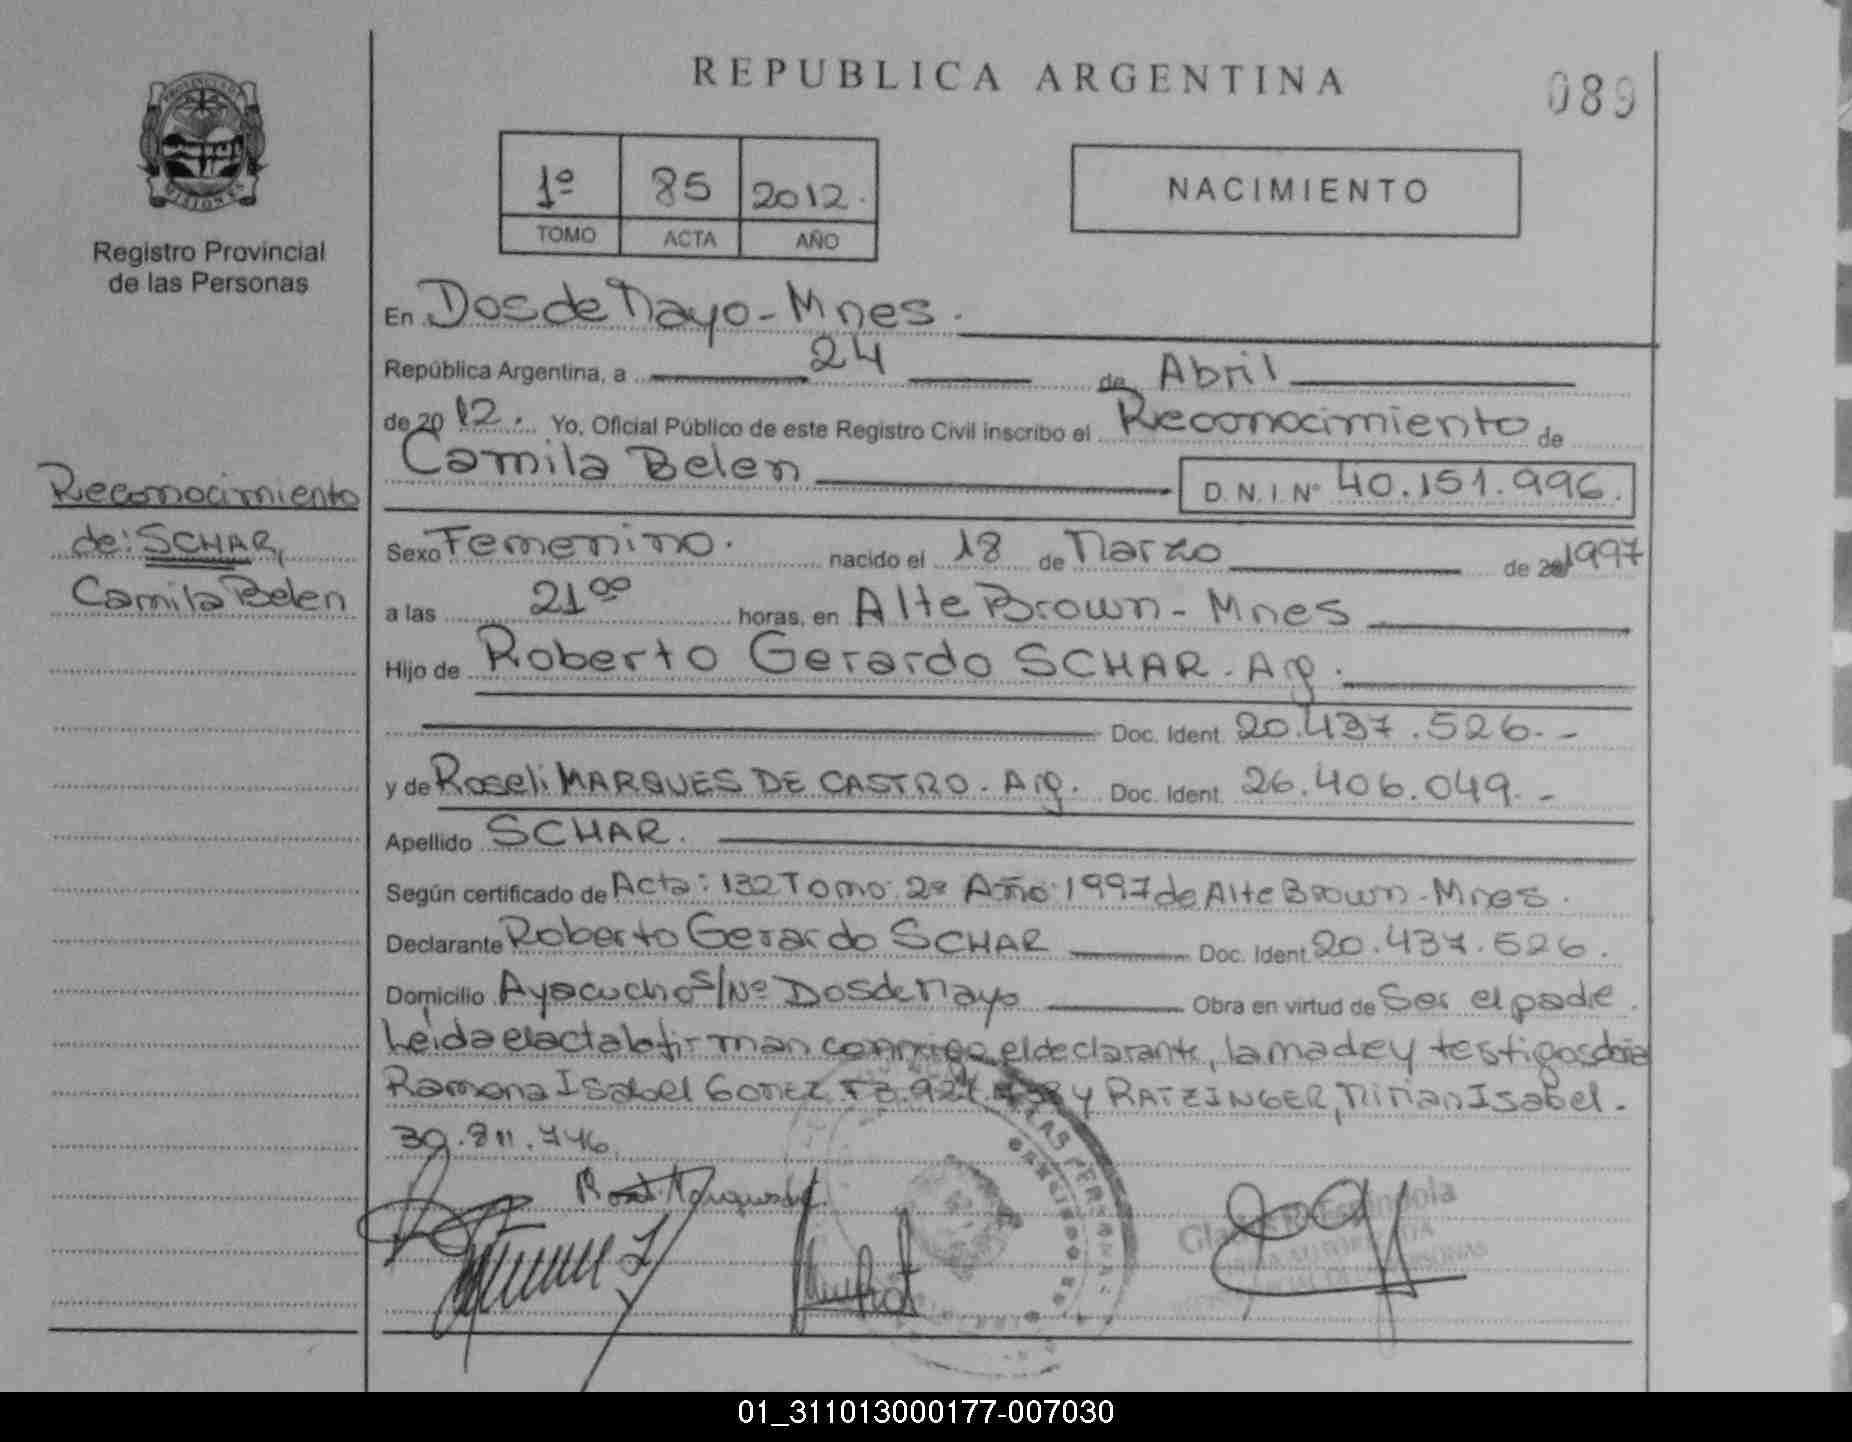 REPUBLICA ARGENTINA
089
PROVINCIA DE MISIONES
Registro Provincial
de las Personas
1º 85 2012.
TOMO ACTA AÑO
NACIMIENTO
En Dos de Mayo - Mnes.
República Argentina, a 24 de Abril
de 2012. Yo, Oficial Público de este Registro Civil inscribo el Reconocimiento de
Camila Belen D.N.I. Nº 40.151.996.
Reconocimiento
de: SCHAR,
Camila Belen
Sexo Femenino. nacido el 18 de Marzo de 20 1997
a las 21⁰⁰ horas, en Alte Brown - Mnes
Hijo de Roberto Gerardo SCHAR - Arg.
Doc. Ident. 20.437.526. -
y de Roseli MARQUES DE CASTRO - Arg. Doc. Ident. 26.406.049. -
Apellido SCHAR.
Según certificado de Acta: 132 Tomo: 2º Año: 1997 de Alte Brown - Mnes.
Declarante Roberto Gerardo SCHAR Doc. Ident. 20.437.526.
Domicilio Ayacucho S/Nº Dos de Mayo Obra en virtud de Ser el padre.
Leida el acta la firman conmigo, el declarante, la madre y testigos
Ramona Isabel Gomez y RATZINGER, Mirian Isabel.
30.811.746
LAS PERSONAS
01_311013000177-007030